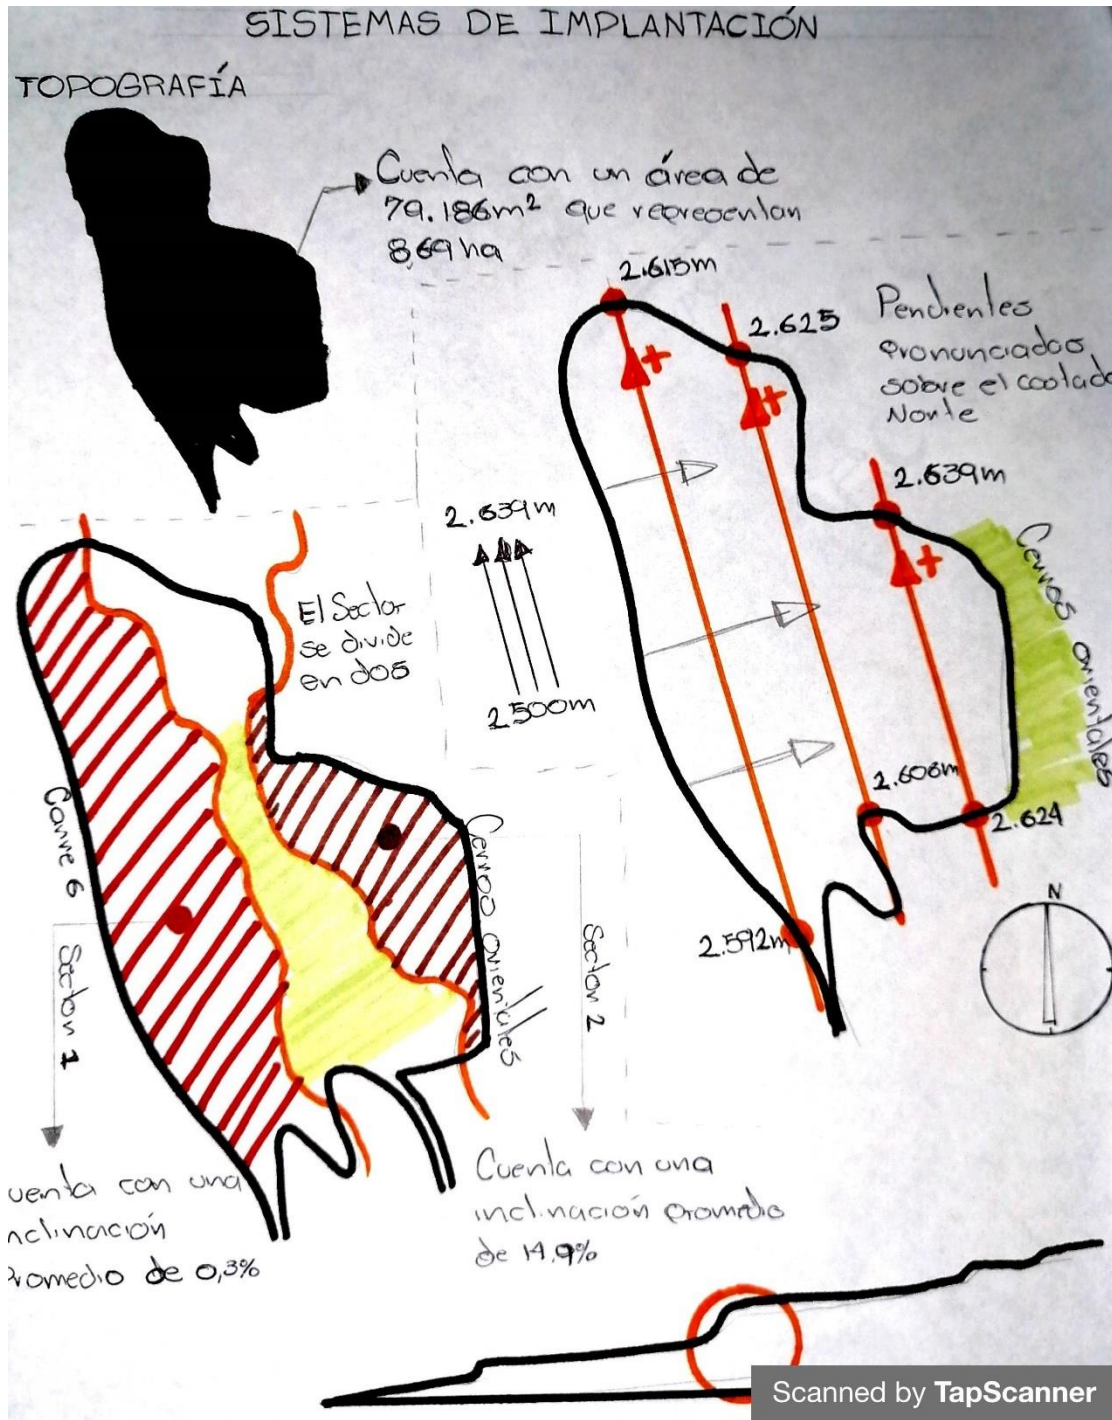 SISTEMAS DE IMPLANTACIÓN
TOPOGRAFÍA
Cuenta con un área de
79.186m² que representan
8,69 ha
2.615m
2.625
Pendientes
pronunciadas
sobre el costado
Norte
2.639m
Cerros orientales
2.639m
2.500m
2.606m
2.624
2.592m
N
El Sector
se divide
en dos
Carre 6
Cerros orientales
Sector 1
Sector 2
uenta con una
nclinación
Promedio de 0,3%
Cuenta con una
inclinación promedio
de 14.9%
Scanned by TapScanner